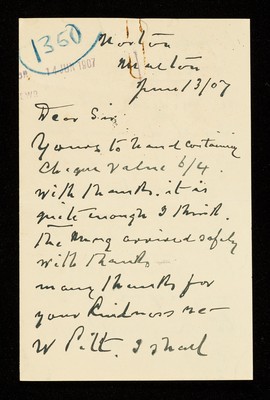 1360
14 JUN 1907
Norton
Malton
June 13/07
Dear Sir
Yours to hand containing
Cheque value 6/4.
with thanks. it is
quite enough I think.
The arrived safely
with thanks
many thanks for
your kindness re
W Pitt. I shall